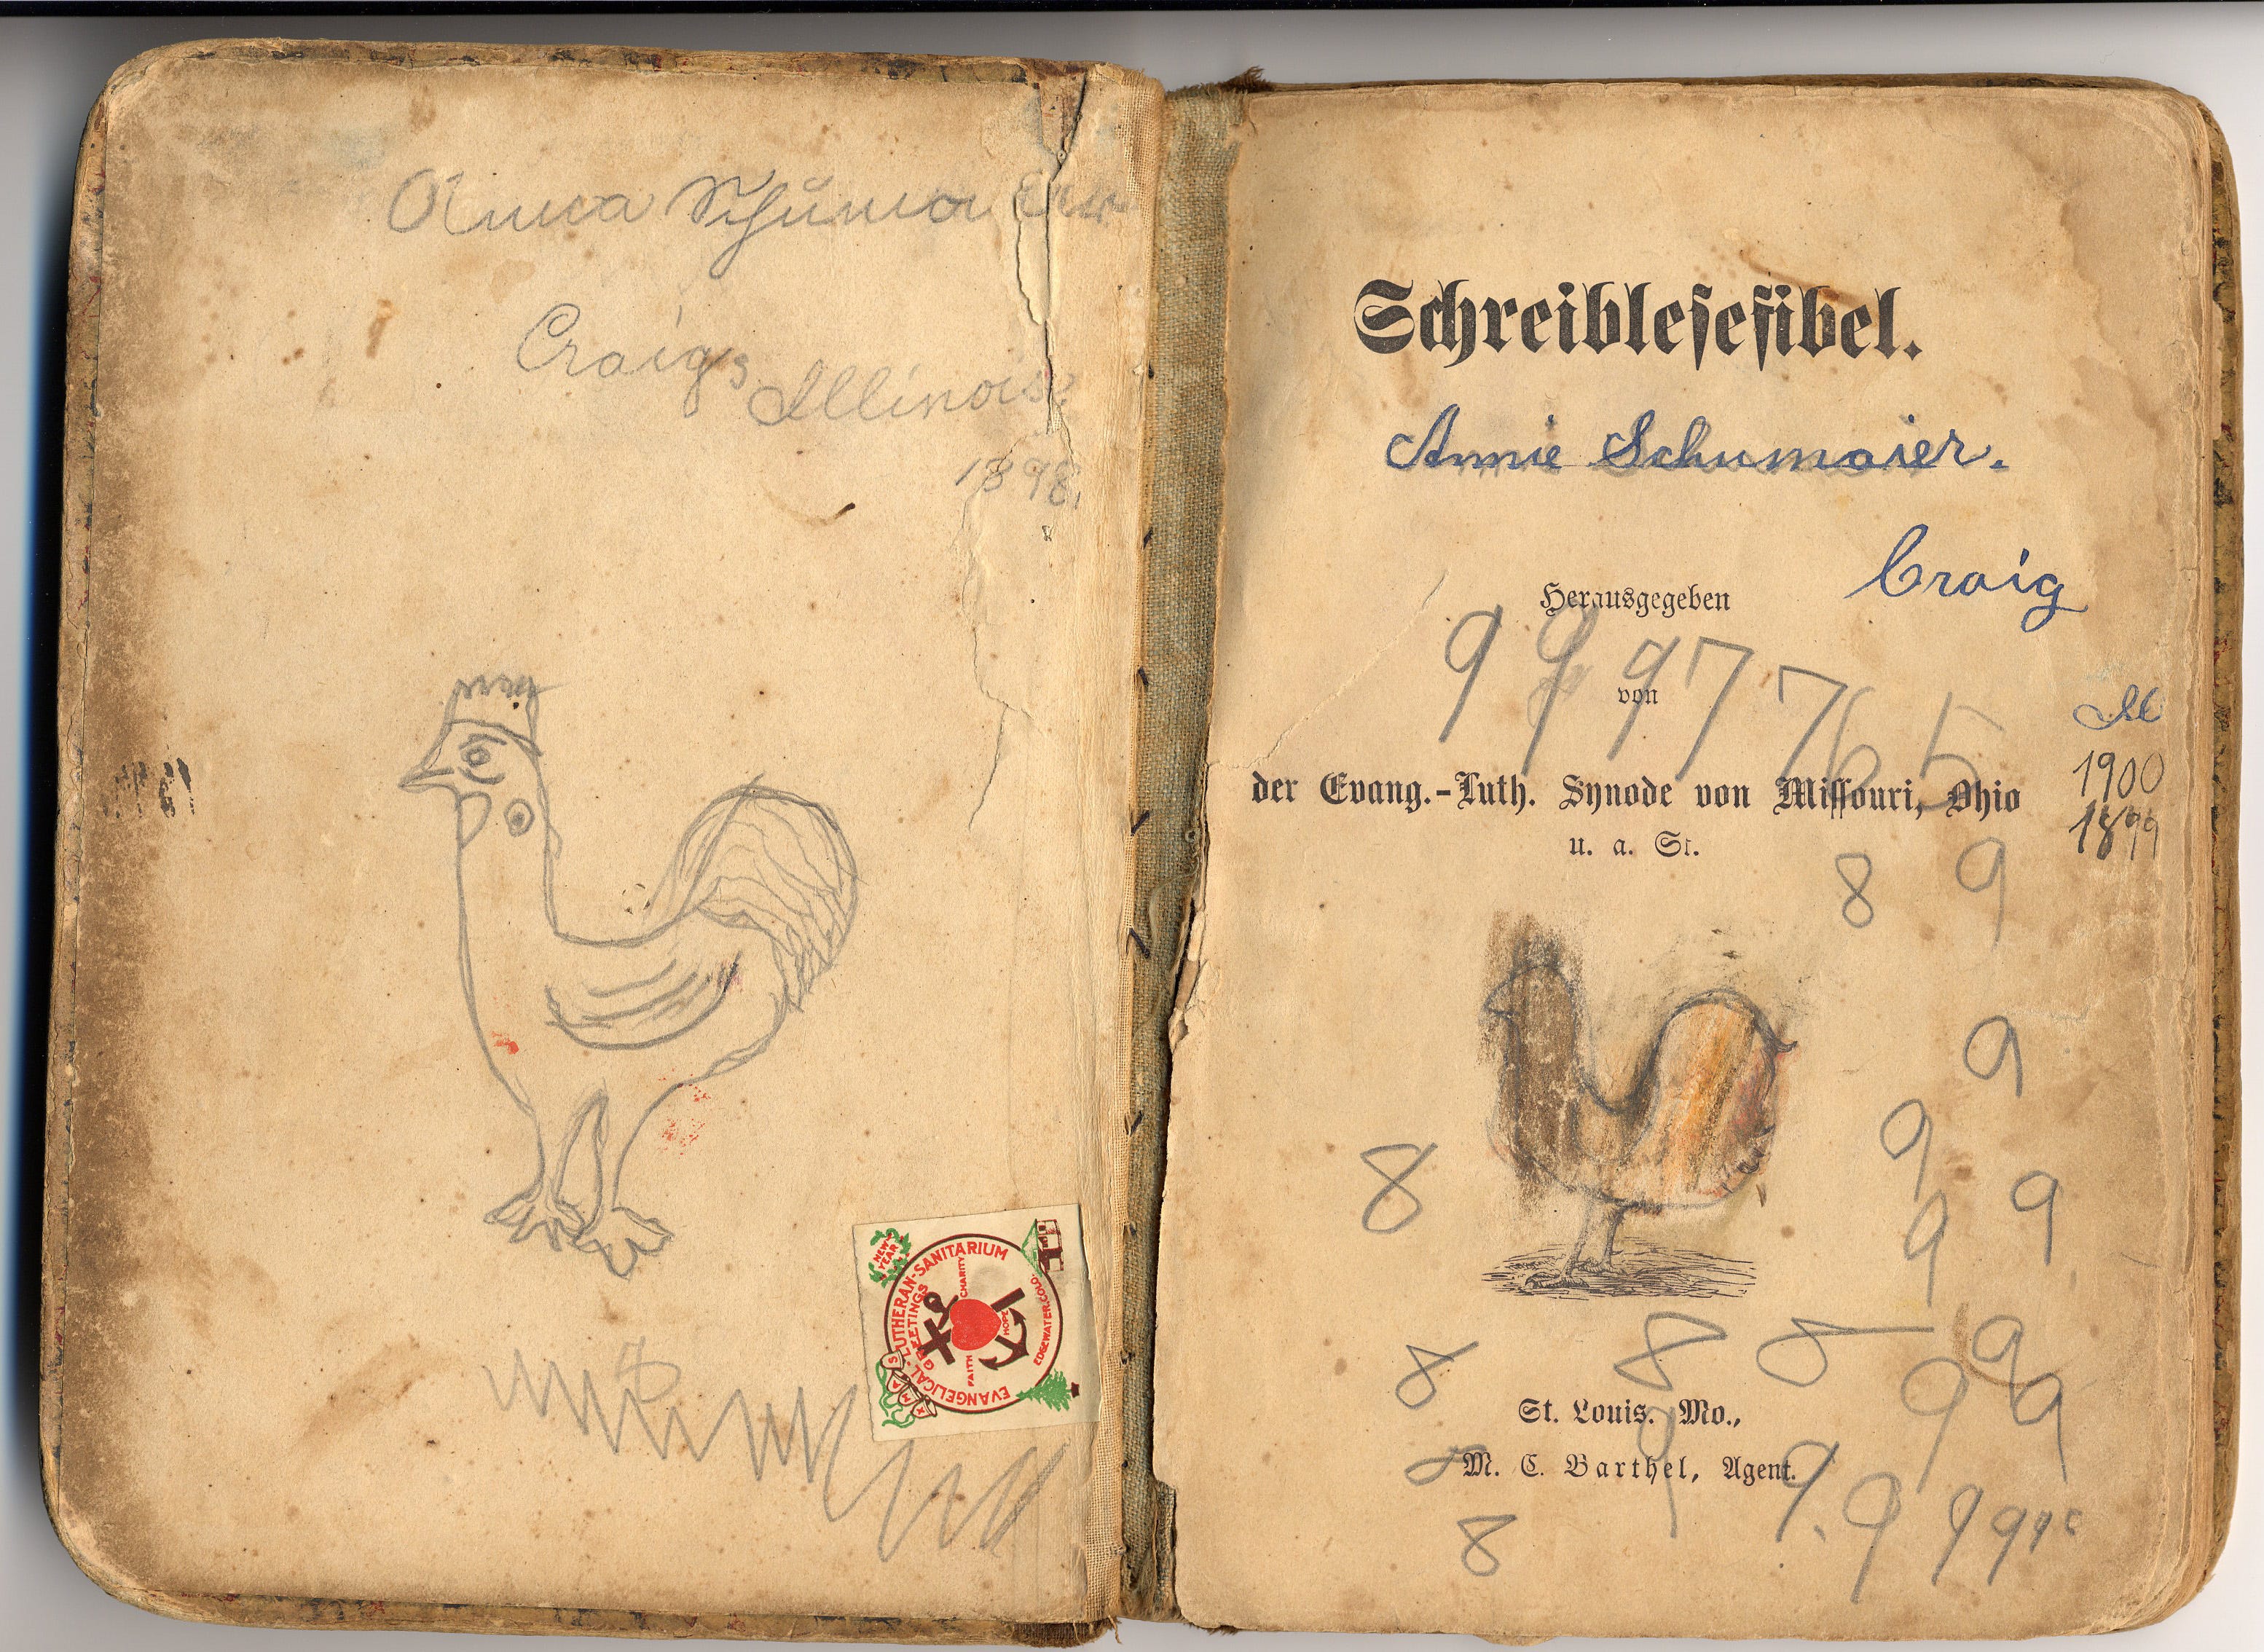 Anna Schumaier
Craigs Illinois.
1898.
NEW YEAR
GREETINGS
EVANGELICAL-LUTHERAN-SANITARIUM
EDGEWATER.COLO.
CHARITY
HOPE
FAITH
XMAS
Schreiblesefibel.
Annie Schumaier.
Craig
Herausgegeben
9 9 9 7 7 6 5
von
Ill
1900
1899
der Evang.-Luth. Synode von Missouri, Ohio
u. a. St.
8 9
9
9
8 9
9
8 8 8 9
9 9
St. Louis. Mo.,
M. C. Barthel, Agent.
8 9 9
9 9 9
8